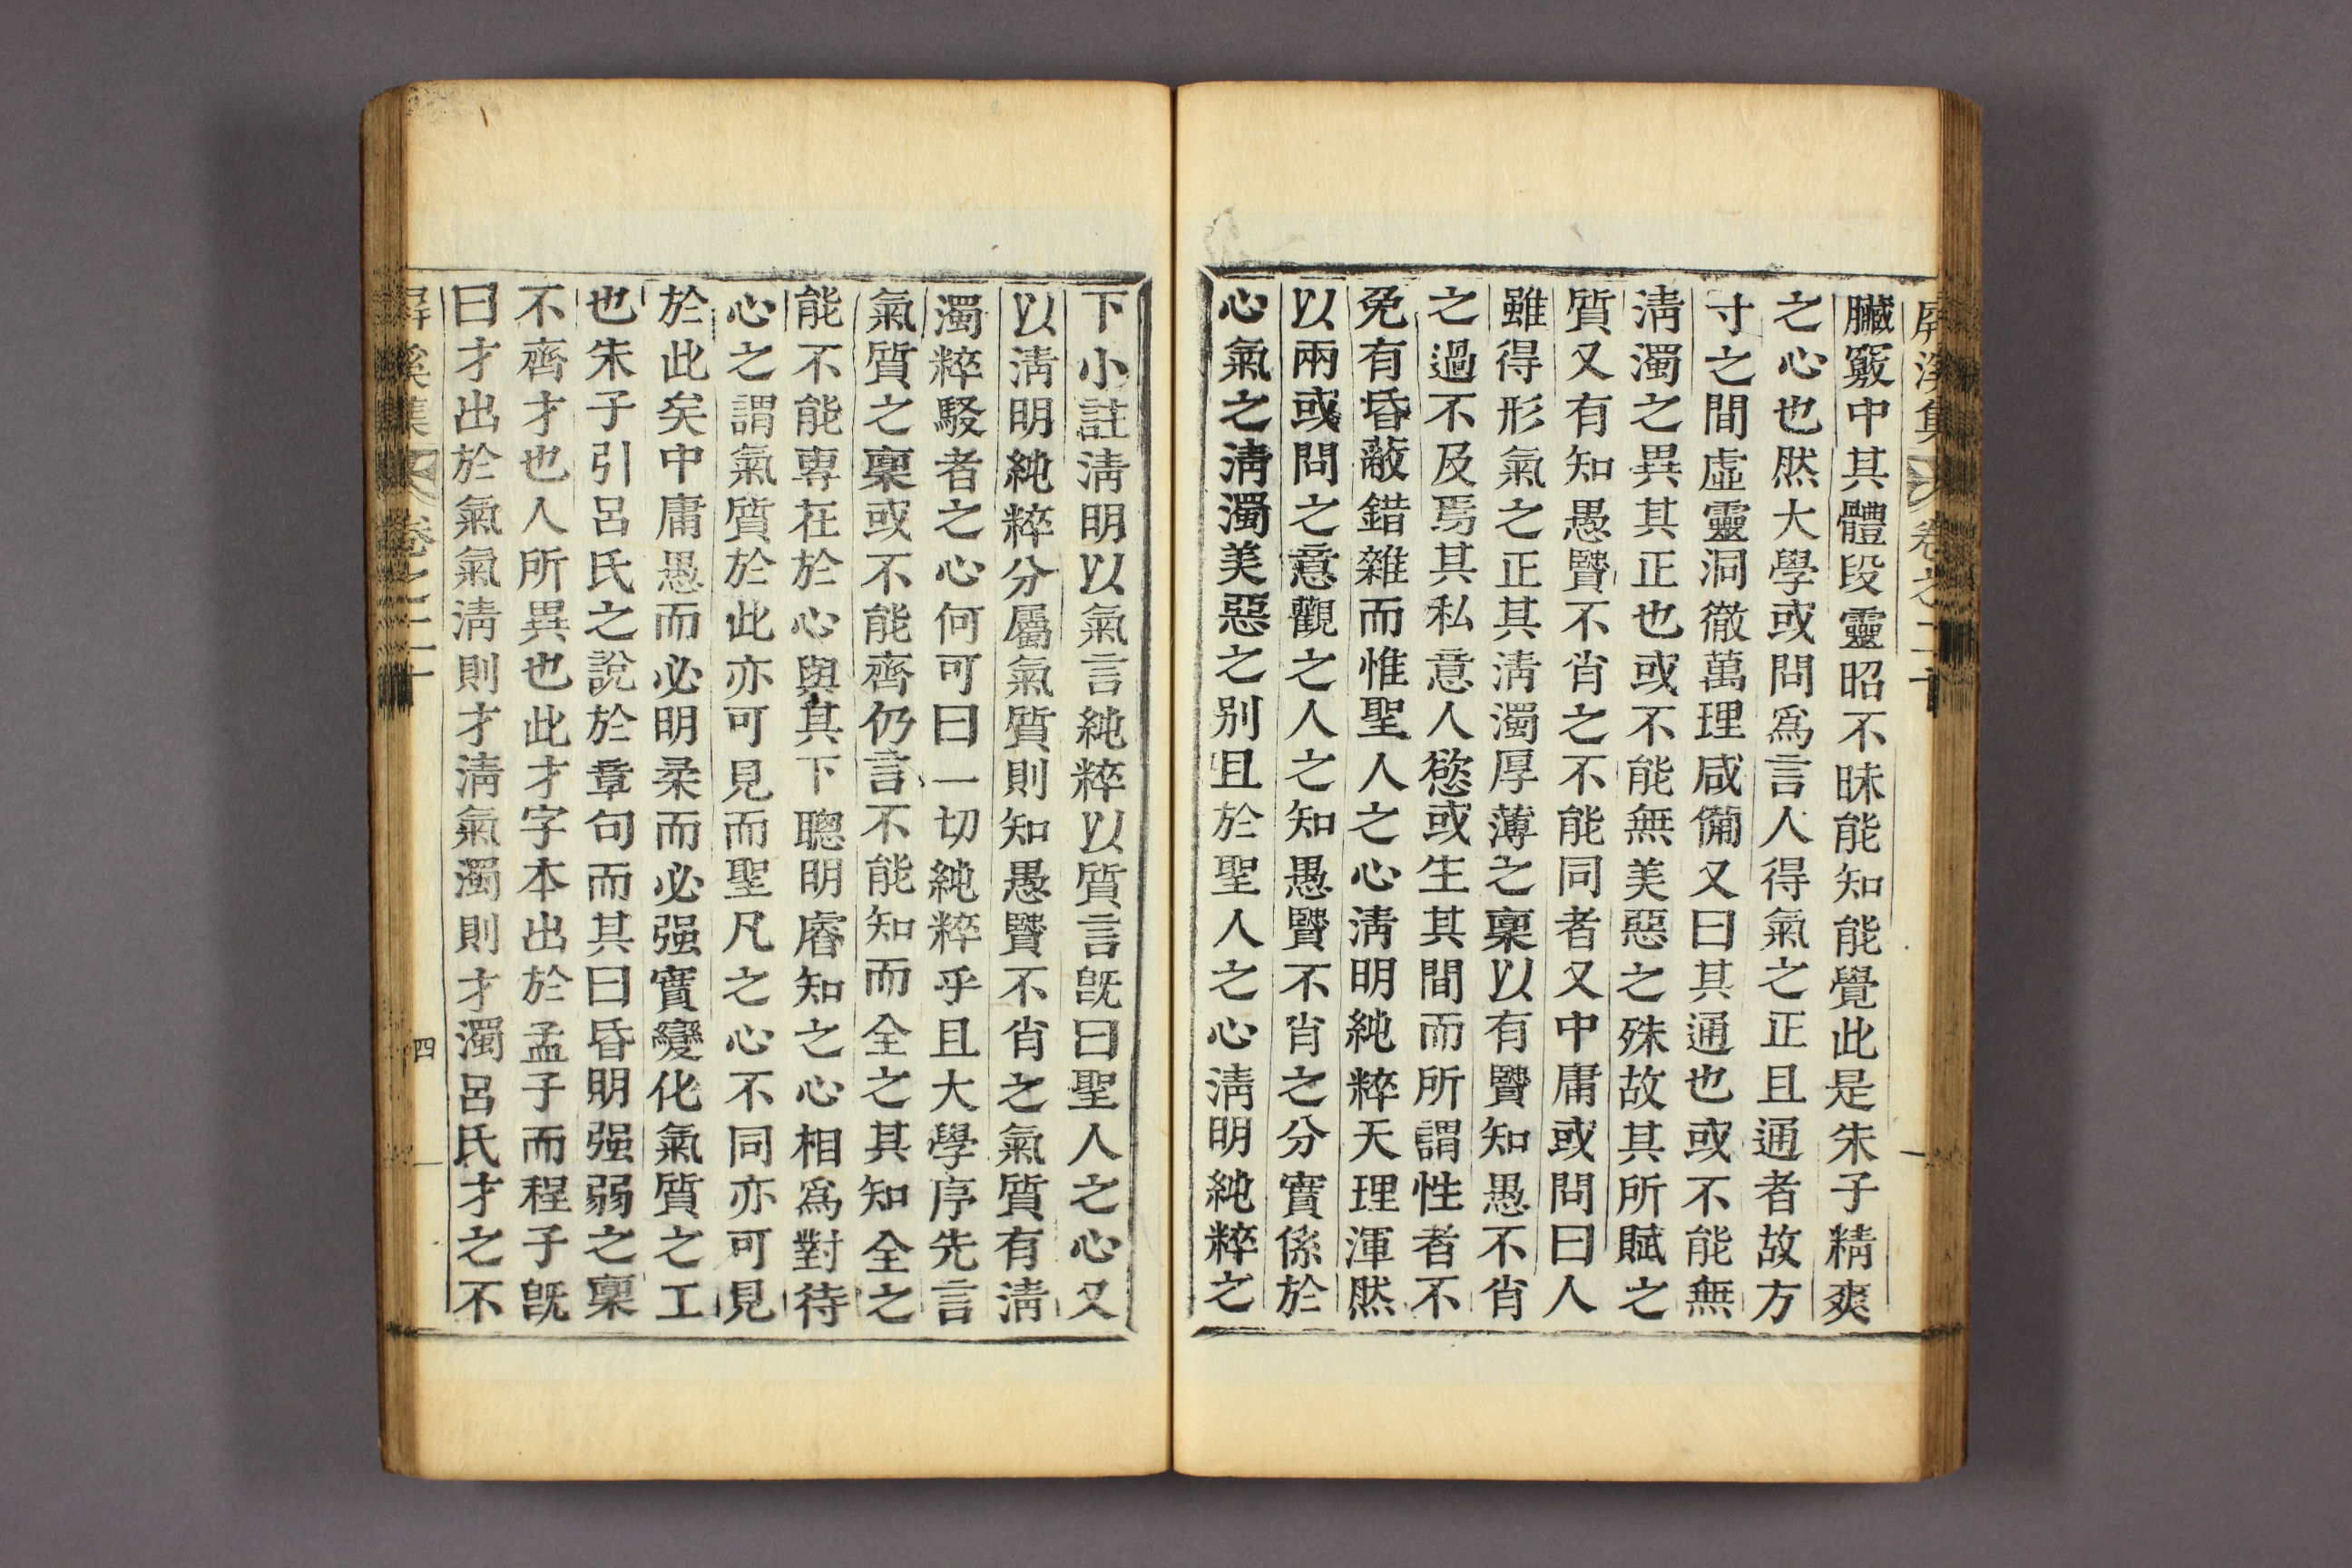 屏溪集 卷之二十
臟竅中其體段靈昭不昧能知能覺此是朱子精爽
之心也然大學或問爲言人得氣之正且通者故方
寸之間虛靈洞徹萬理咸備又曰其通也或不能無
淸濁之異其正也或不能無美惡之殊故其所賦之
質又有知愚賢不肖之不能同者又中庸或問曰人
雖得形氣之正其淸濁厚薄之稟以有賢知愚不肖
之過不及焉其私意人慾或生其間而所謂性者不
免有昏蔽錯雜而惟聖人之心淸明純粹天理渾然
以兩或問之意觀之人之知愚賢不肖之分實係於
心氣之淸濁美惡之別且於聖人之心淸明純粹之
下小註淸明以氣言純粹以質言旣曰聖人之心又
以淸明純粹分屬氣質則知愚賢不肖之氣質有淸
濁粹駁者之心何可曰一切純粹乎且大學序先言
氣質之稟或不能齊仍言不能知而全之其知全之
能不能專在於心與其下聰明睿知之心相爲對待
心之謂氣質於此亦可見而聖凡之心不同亦可見
於此矣中庸愚而必明柔而必强實變化氣質之工
也朱子引呂氏之說於章句而其曰昏明强弱之稟
不齊才也人所異也此才字本出於孟子而程子旣
曰才出於氣氣淸則才淸氣濁則才濁呂氏才之不
屏溪集 卷之二十 四